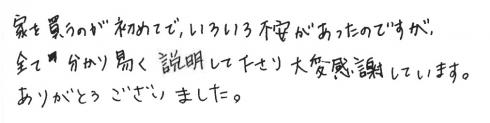 家を買うのが初めてで、いろいろ不安があったのですが、
全て分かり易く説明して下さり大変感謝しています。
ありがとうございました。